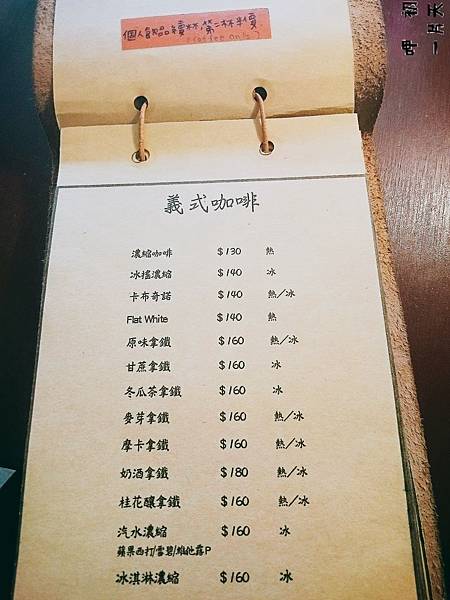 個人飲品續杯,第二杯半價
Coffee only
初
一片天
呷
義式咖啡
濃縮咖啡 $130 熱
冰搖濃縮 $140 冰
卡布奇諾 $140 熱/冰
Flat White $140 熱
原味拿鐵 $160 熱/冰
甘蔗拿鐵 $160 冰
冬瓜茶拿鐵 $160 冰
麥芽拿鐵 $160 熱/冰
摩卡拿鐵 $160 熱/冰
奶酒拿鐵 $180 熱/冰
桂花釀拿鐵 $160 熱/冰
汽水濃縮 $160 冰
蘋果西打/雪碧/維他露P
冰淇淋濃縮 $160 冰